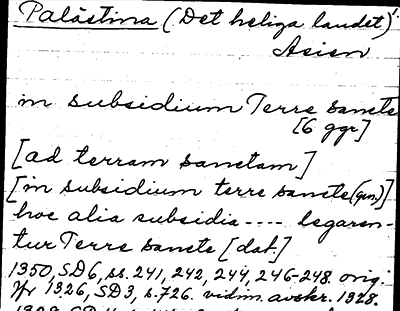 Palästina (Det heliga landet)
Asien
in subsidium Terre sancte
[6 ggr]
[ad terram sanctam]
[in subsidium terre sancte (gen.)]
hoc alia subsidia ---- legaren-
tur Terre sancte [dat.]
1350, SD6, ss. 241, 242, 244, 246-248. orig.
Jfr 1326, SD3, s. 726. vidim. avskr. 1328.